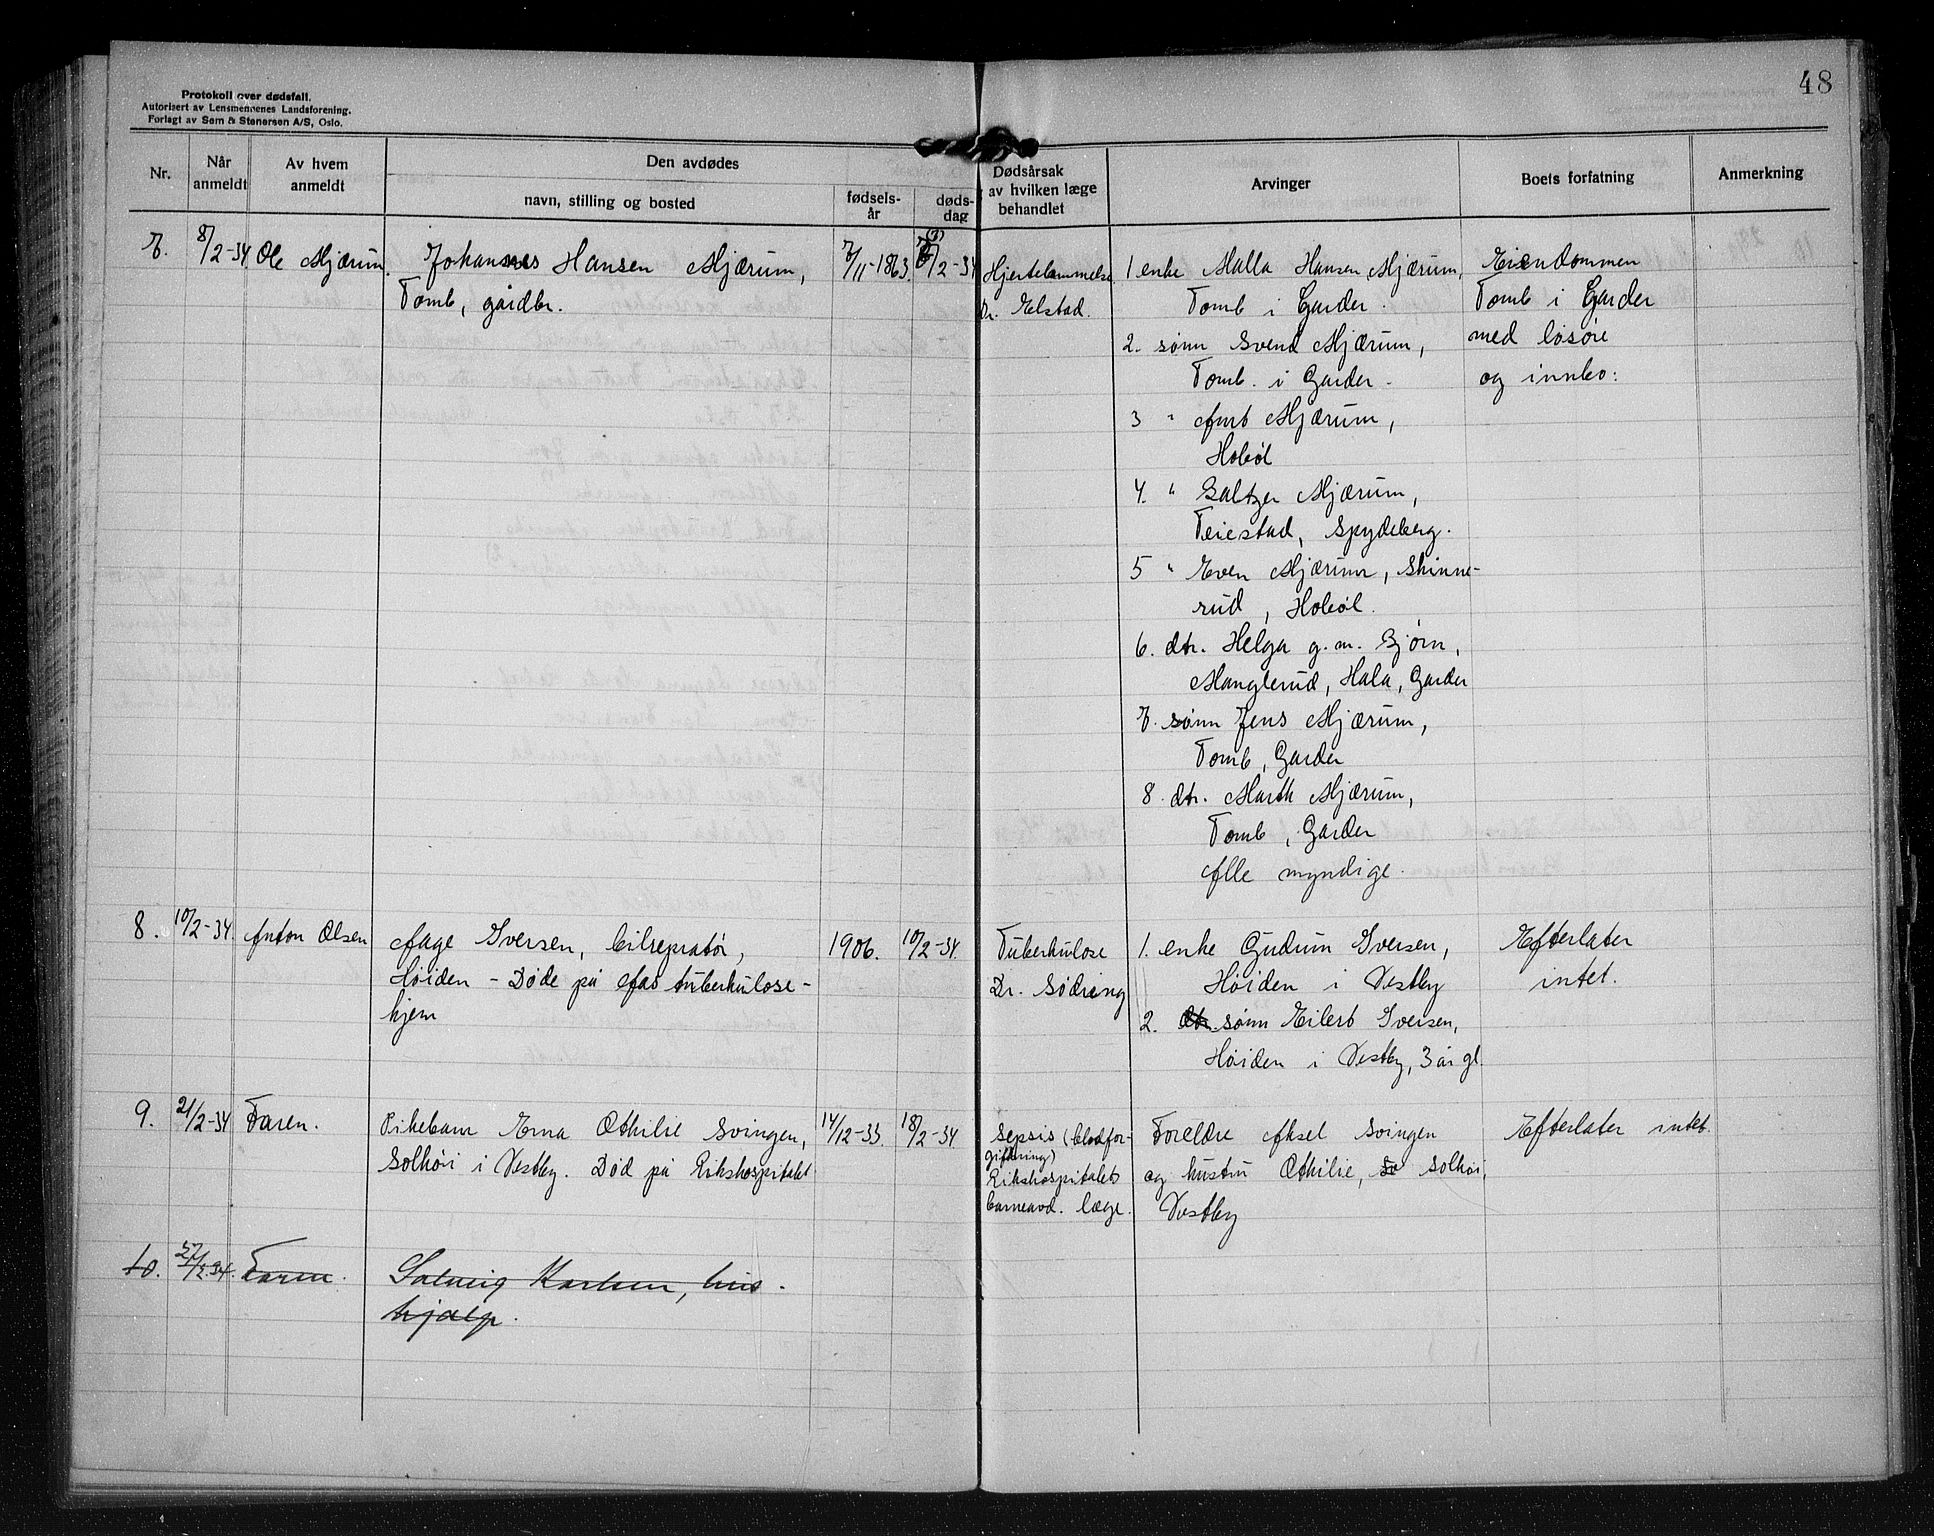 48
Protokoll over dødsfall.
Autorisert av Lensmennenes Landsforening.
Forlagt av Sem & Stenersen A/S, Oslo.
Nr.
Når anmeldt
Av hvem anmeldt
Den avdødes
navn, stilling og bosted
fødsels-år
døds-dag
Dødsårsak
av hvilken læge
behandlet
Arvinger
Boets forfatning
Anmerkning
7. 8/2-34 Ole Mjærum. Johannes Hansen Mjærum, 7/11-1863. /2-34
Tomb, gårdbr.
Hjertelammelse
Dr. Elstad.
1 enke Malla Hansen Mjærum,
Tomb i Garder.
2. sønn Svend Mjærum,
Tomb. i Garder.
3 " Amb Mjærum,
Hobøl
4. " Baltzer Mjærum,
Teiestad, Spydeberg.
5 " Even Mjærum, Skinne-
rud, Hobøl.
6. dtr. Helga g.m. Bjørn,
Manglerud, Hala, Garder
7. sønn Jens Mjærum,
Tomb, Garder
8. dtr. Marth Mjærum,
Tomb, Garder
Alle myndige.
Eiendommen
Tomb i Garder
med løsøre
og innbo:
8. 10/2-34. Anton Olsen Aage Iversen, bilrepratør, 1906. 10/2-34.
Høiden - Døde på Aas tuberkulose-
hjem
Tuberkulose
Dr. Sødring
1. enke Gudrun Iversen,
Høiden i Vestby
2. dtr. sønn Eilert Iversen,
Høiden i Vestby, 3 år gl.
Efterlater
intet.
9. 21/2-34 Faren. Pikebarn Erna Othilie Svingen, 14/12-33. 18/2-34
Solhøi i Vestby. Død på Rikshospitalet
Sepsis (blodfor-
giftning)
Rikshospitalets
barneavd. læge.
Foreldre Aksel Svingen
og hustru Othilie, So Solhøi,
Vestby
Efterlater intet.
10. 27/2.34. Faren. Solveig Karlsen, hus-
hjælp.